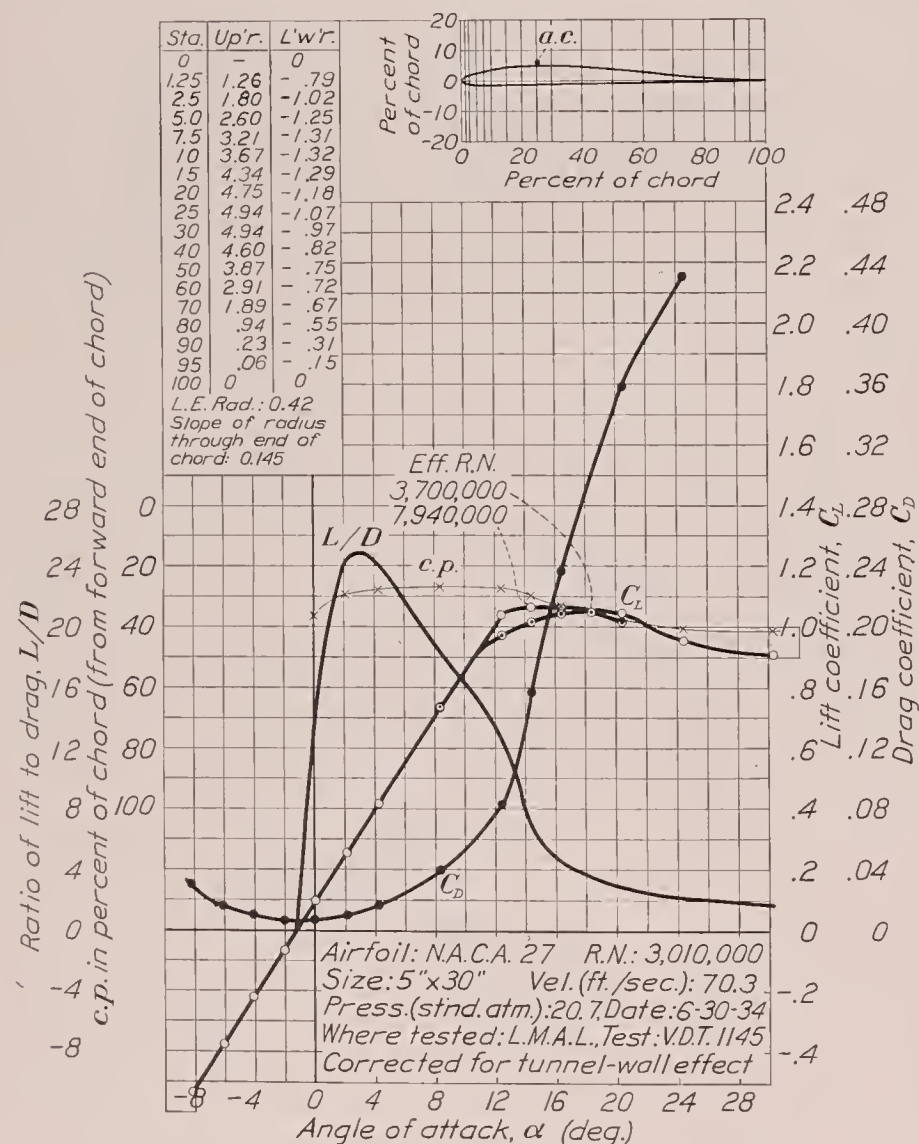 Sta. Up'r. L'w'r.
0 – 0
1.25 1.26 - .79
2.5 1.80 -1.02
5.0 2.60 -1.25
7.5 3.21 -1.31
10 3.67 -1.32
15 4.34 -1.29
20 4.75 -1.18
25 4.94 -1.07
30 4.94 - .97
40 4.60 - .82
50 3.87 - .75
60 2.91 - .72
70 1.89 - .67
80 .94 - .55
90 .23 - .31
95 .06 - .15
100 0 0
L.E. Rad.: 0.42
Slope of radius
through end of
chord: 0.145
Percent
of chord
20
10
0
-10
-20
a.c.
0 20 40 60 80 100
Percent of chord
Ratio of lift to drag, L/D
28
24
20
16
12
8
4
0
-4
-8
c.p. in percent of chord (from forward end of chord)
0
20
40
60
80
100
L/D
c.p.
Eff. R.N.
3,700,000
7,940,000
C_L
C_D
2.4 .48
2.2 .44
2.0 .40
1.8 .36
1.6 .32
1.4 .28
1.2 .24
1.0 .20
.8 .16
.6 .12
.4 .08
.2 .04
0 0
-.2
-.4
Lift coefficient, C_L
Drag coefficient, C_D
Airfoil: N.A.C.A. 27 R.N.: 3,010,000
Size: 5"x30" Vel. (ft./sec.): 70.3
Press. (stnd. atm.): 20.7 Date: 6-30-34
Where tested: L.M.A.L., Test: V.D.T. 1145
Corrected for tunnel-wall effect
-8 -4 0 4 8 12 16 20 24 28
Angle of attack, α (deg.)